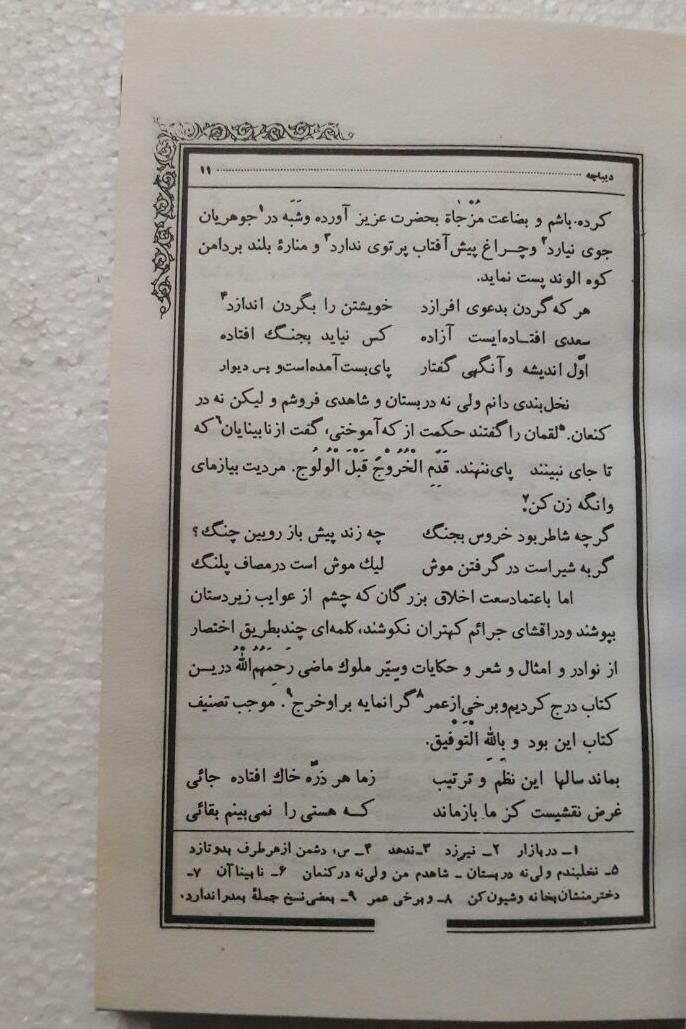 دیباچه ۱۱
کرده باشم و بضاعت مُزْجٰاة بحضرت عزیز آورده وشَبَه در۱ جوهریان
جوی نیارد۲ وچراغ پیش آفتاب پرتوی ندارد۳ و منارهٔ بلند بردامن
کوه الوند پست نماید.
هر که گردن بدعوی افرازد خویشتن را بگردن اندازد۴
سعدی افتاده‌ایست آزاده کس نیاید بجنگ افتاده
اوّل اندیشه وآنگهی گفتار پای‌بست آمده‌است و پس دیوار
نخل‌بندی دانم ولی نه دربستان و شاهدی فروشم و لیکن نه در
کنعان.۵ لقمان را گفتند حکمت از که آموختی، گفت از نابینایان۶ که
تا جای نبینند پای‌ننهند. قَدِّمِ الْخُرُوْجَ قَبْلَ الْوُلُوجِ. مردیت بیازمای
وانگه زن کن۷.
گرچه شاطر بود خروس بجنگ چه زند پیش باز رویین چنگ؟
گربه شیر است در گرفتن موش لیك موش است در مصاف پلنگ
اما باعتمادسعت اخلاق بزرگان که چشم از عوایب زیردستان
بپوشند ودرافشای جرائم کهتران نکوشند، کلمه‌ای چندبطریق اختصار
از نوادر و امثال و شعر و حکایات وسِیَر ملوك ماضی رَحِمَهُمُ‌اللّٰهُ درین
کتاب درج کردیم‌وبرخی‌ازعمر۸ گرانمایه براوخرج۹. موجب تصنیف
کتاب این بود و بِاللّٰهِ الْتَوْفِیق.
بماند سالها این نظم و ترتیب زما هر ذرّه خاك افتاده جائی
غرض نقشیست کز ما بازماند که هستی را نمی‌بینم بقائی
۱ـ دربازار ۲ـ نیرزد ۳ـ ندهد ۴ـ س، دشمن ازهرطرف بدوتازد
۵ـ نخلبندم ولی نه دربستان ـ شاهدم من ولی نه در کنعان ۶ـ نابیناآن ۷ـ
دخترمنشان بخانه وشیون کن ۸ـ و برخی عمر ۹ـ بعضی نسخ جملهٔ بعدراندارد.